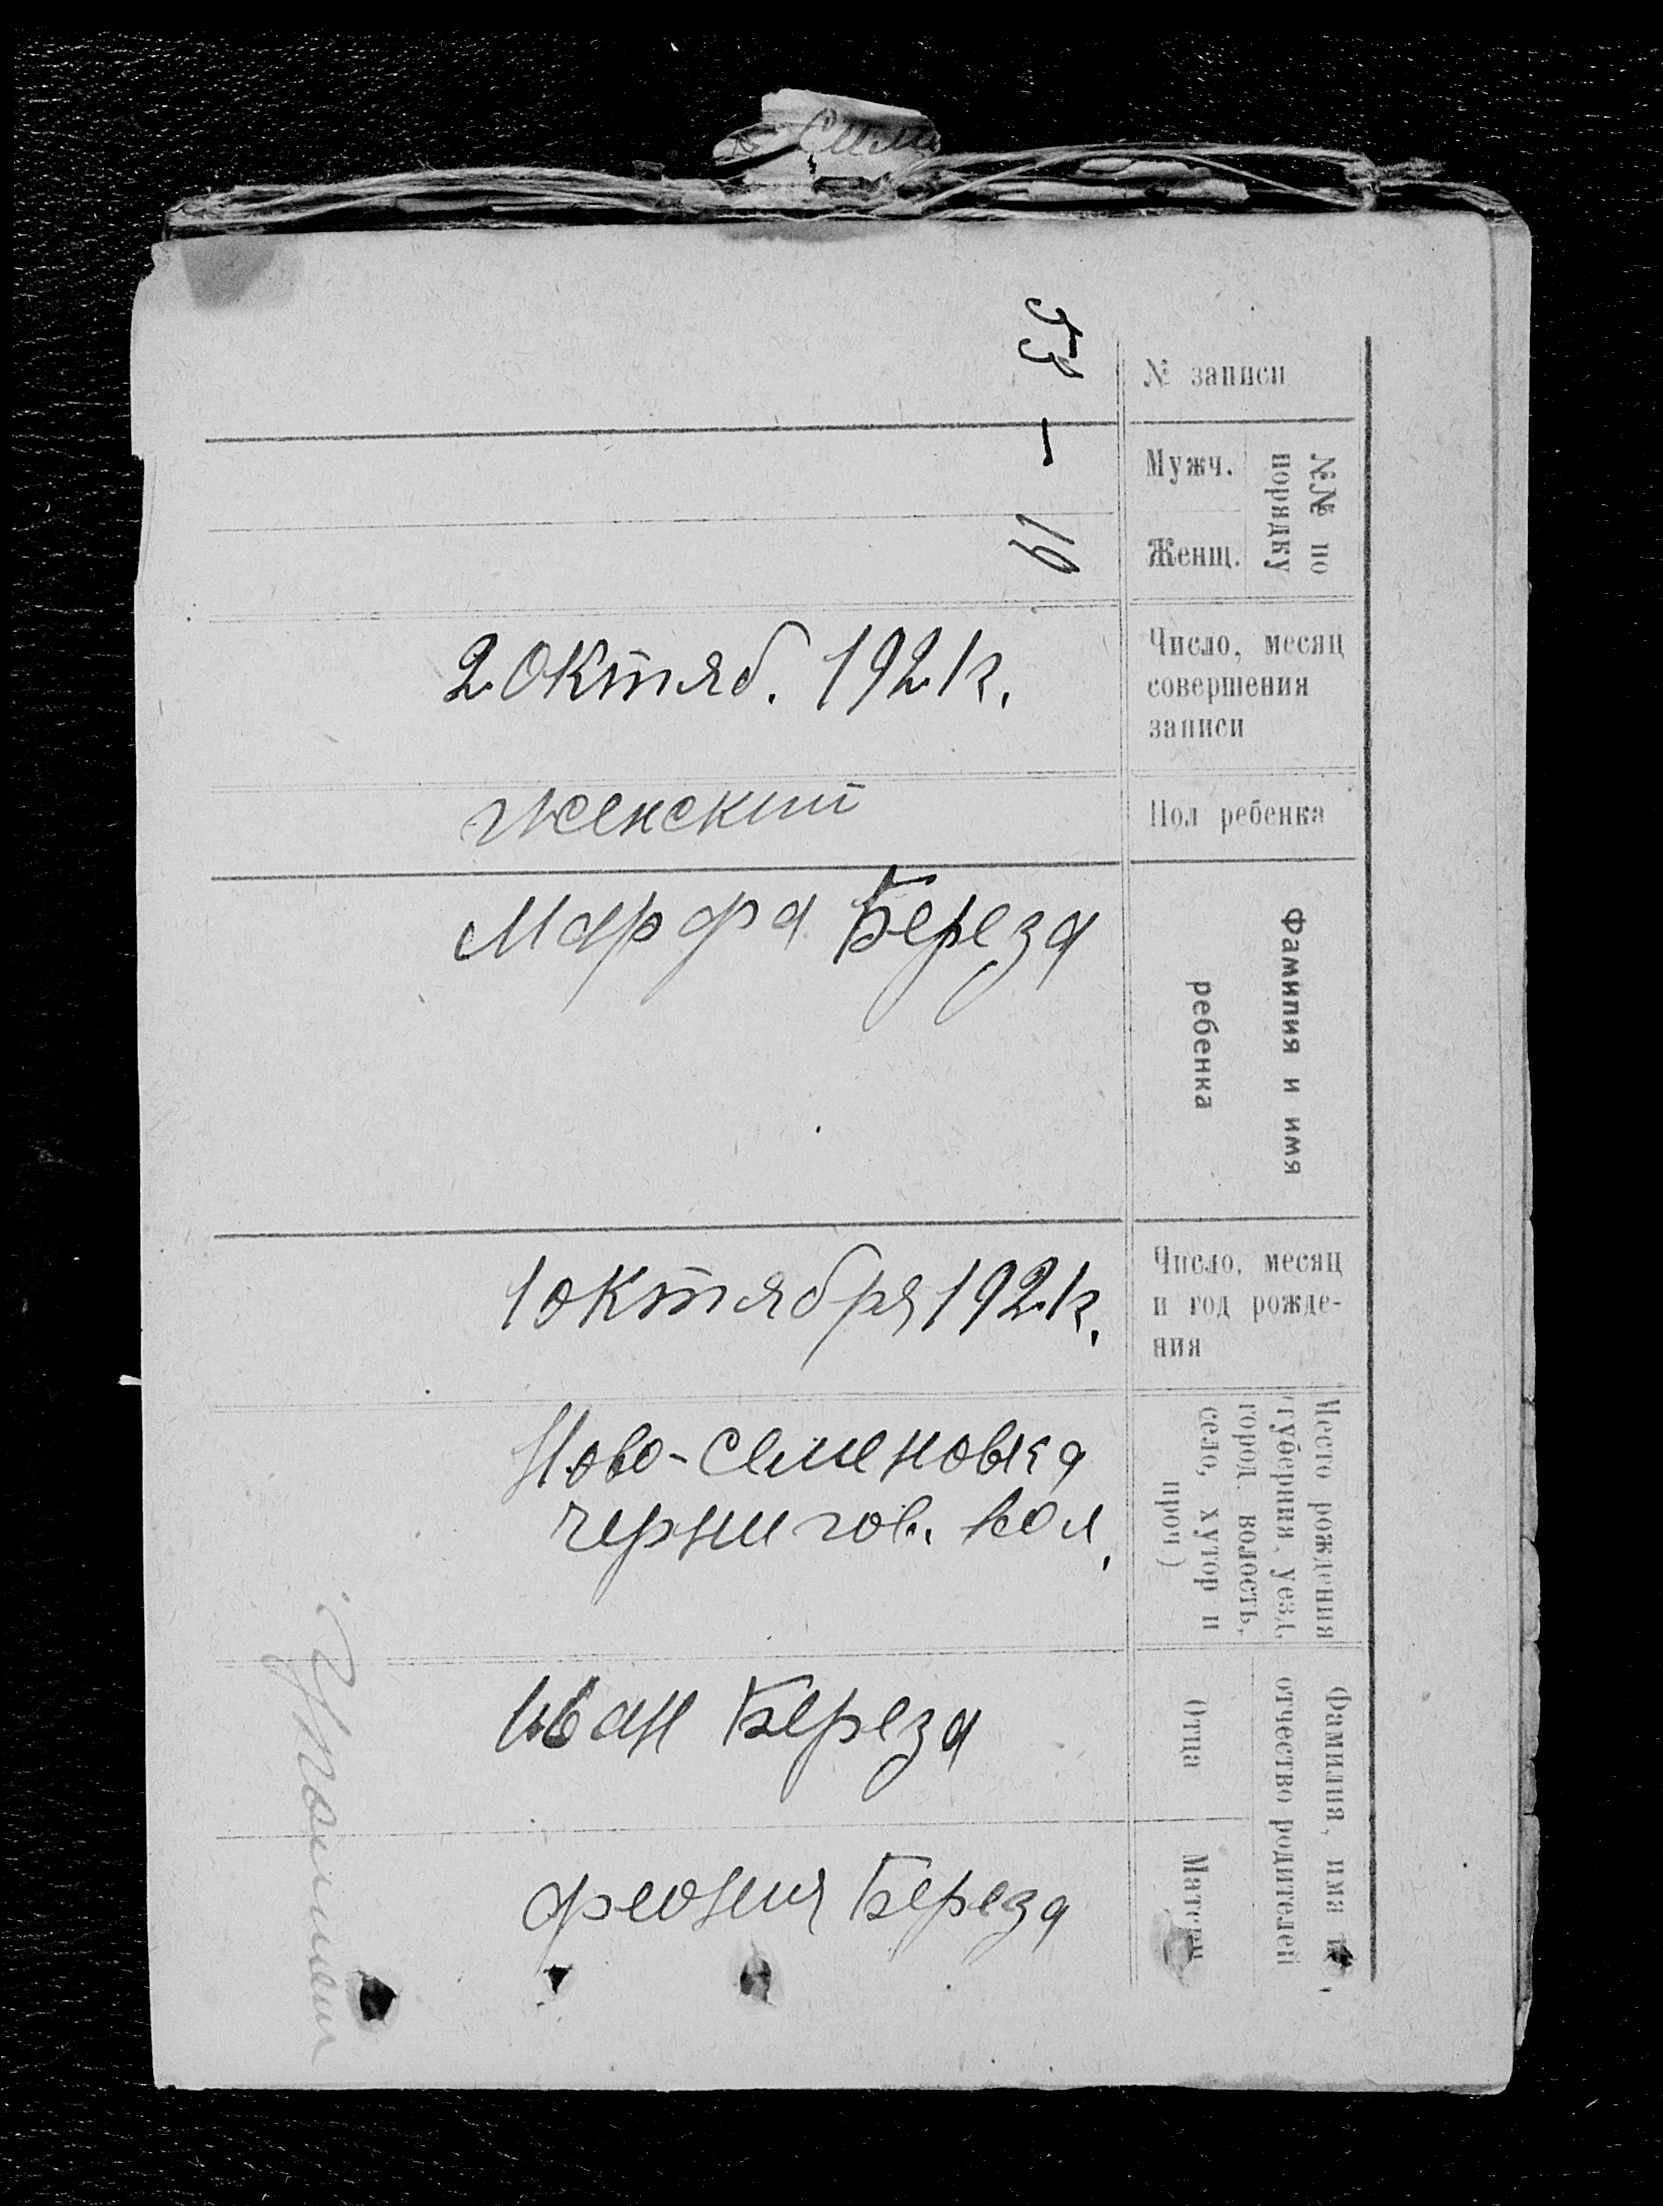 № записи
№№ по порядку
Мужч.
Женщ.
19
Число, месяц
совершения
записи
2 октяб. 1921 г.
Пол ребенка
женский
Фамилия и имя
ребенка
Марфа Береза
Число, месяц
и год рожде-
ния
1 октября 1921 г.
Место рождения
(губерния, уезд,
город, волость,
село, хутор и
проч)
Ново-Семеновка
чернигов. вол.
Фамилия, имя и
отчество родителей
Отца
Иван Береза
Матери
феония Береза